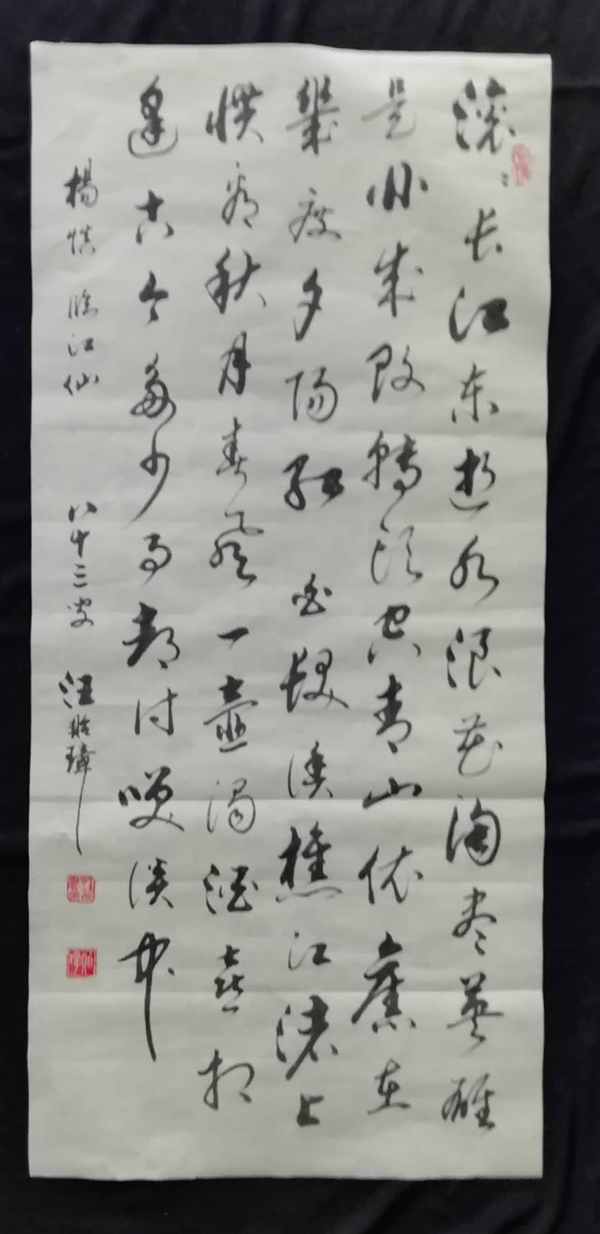 滚〻长江东逝水浪花淘尽英雄
是非成败轉头空青山依舊在
幾度夕陽红 白髮渔樵江渚上
惯看秋月春风一壶濁酒喜相
逢古今多少事都付笑谈中
楊慎临江仙 八十三叟 汪璋